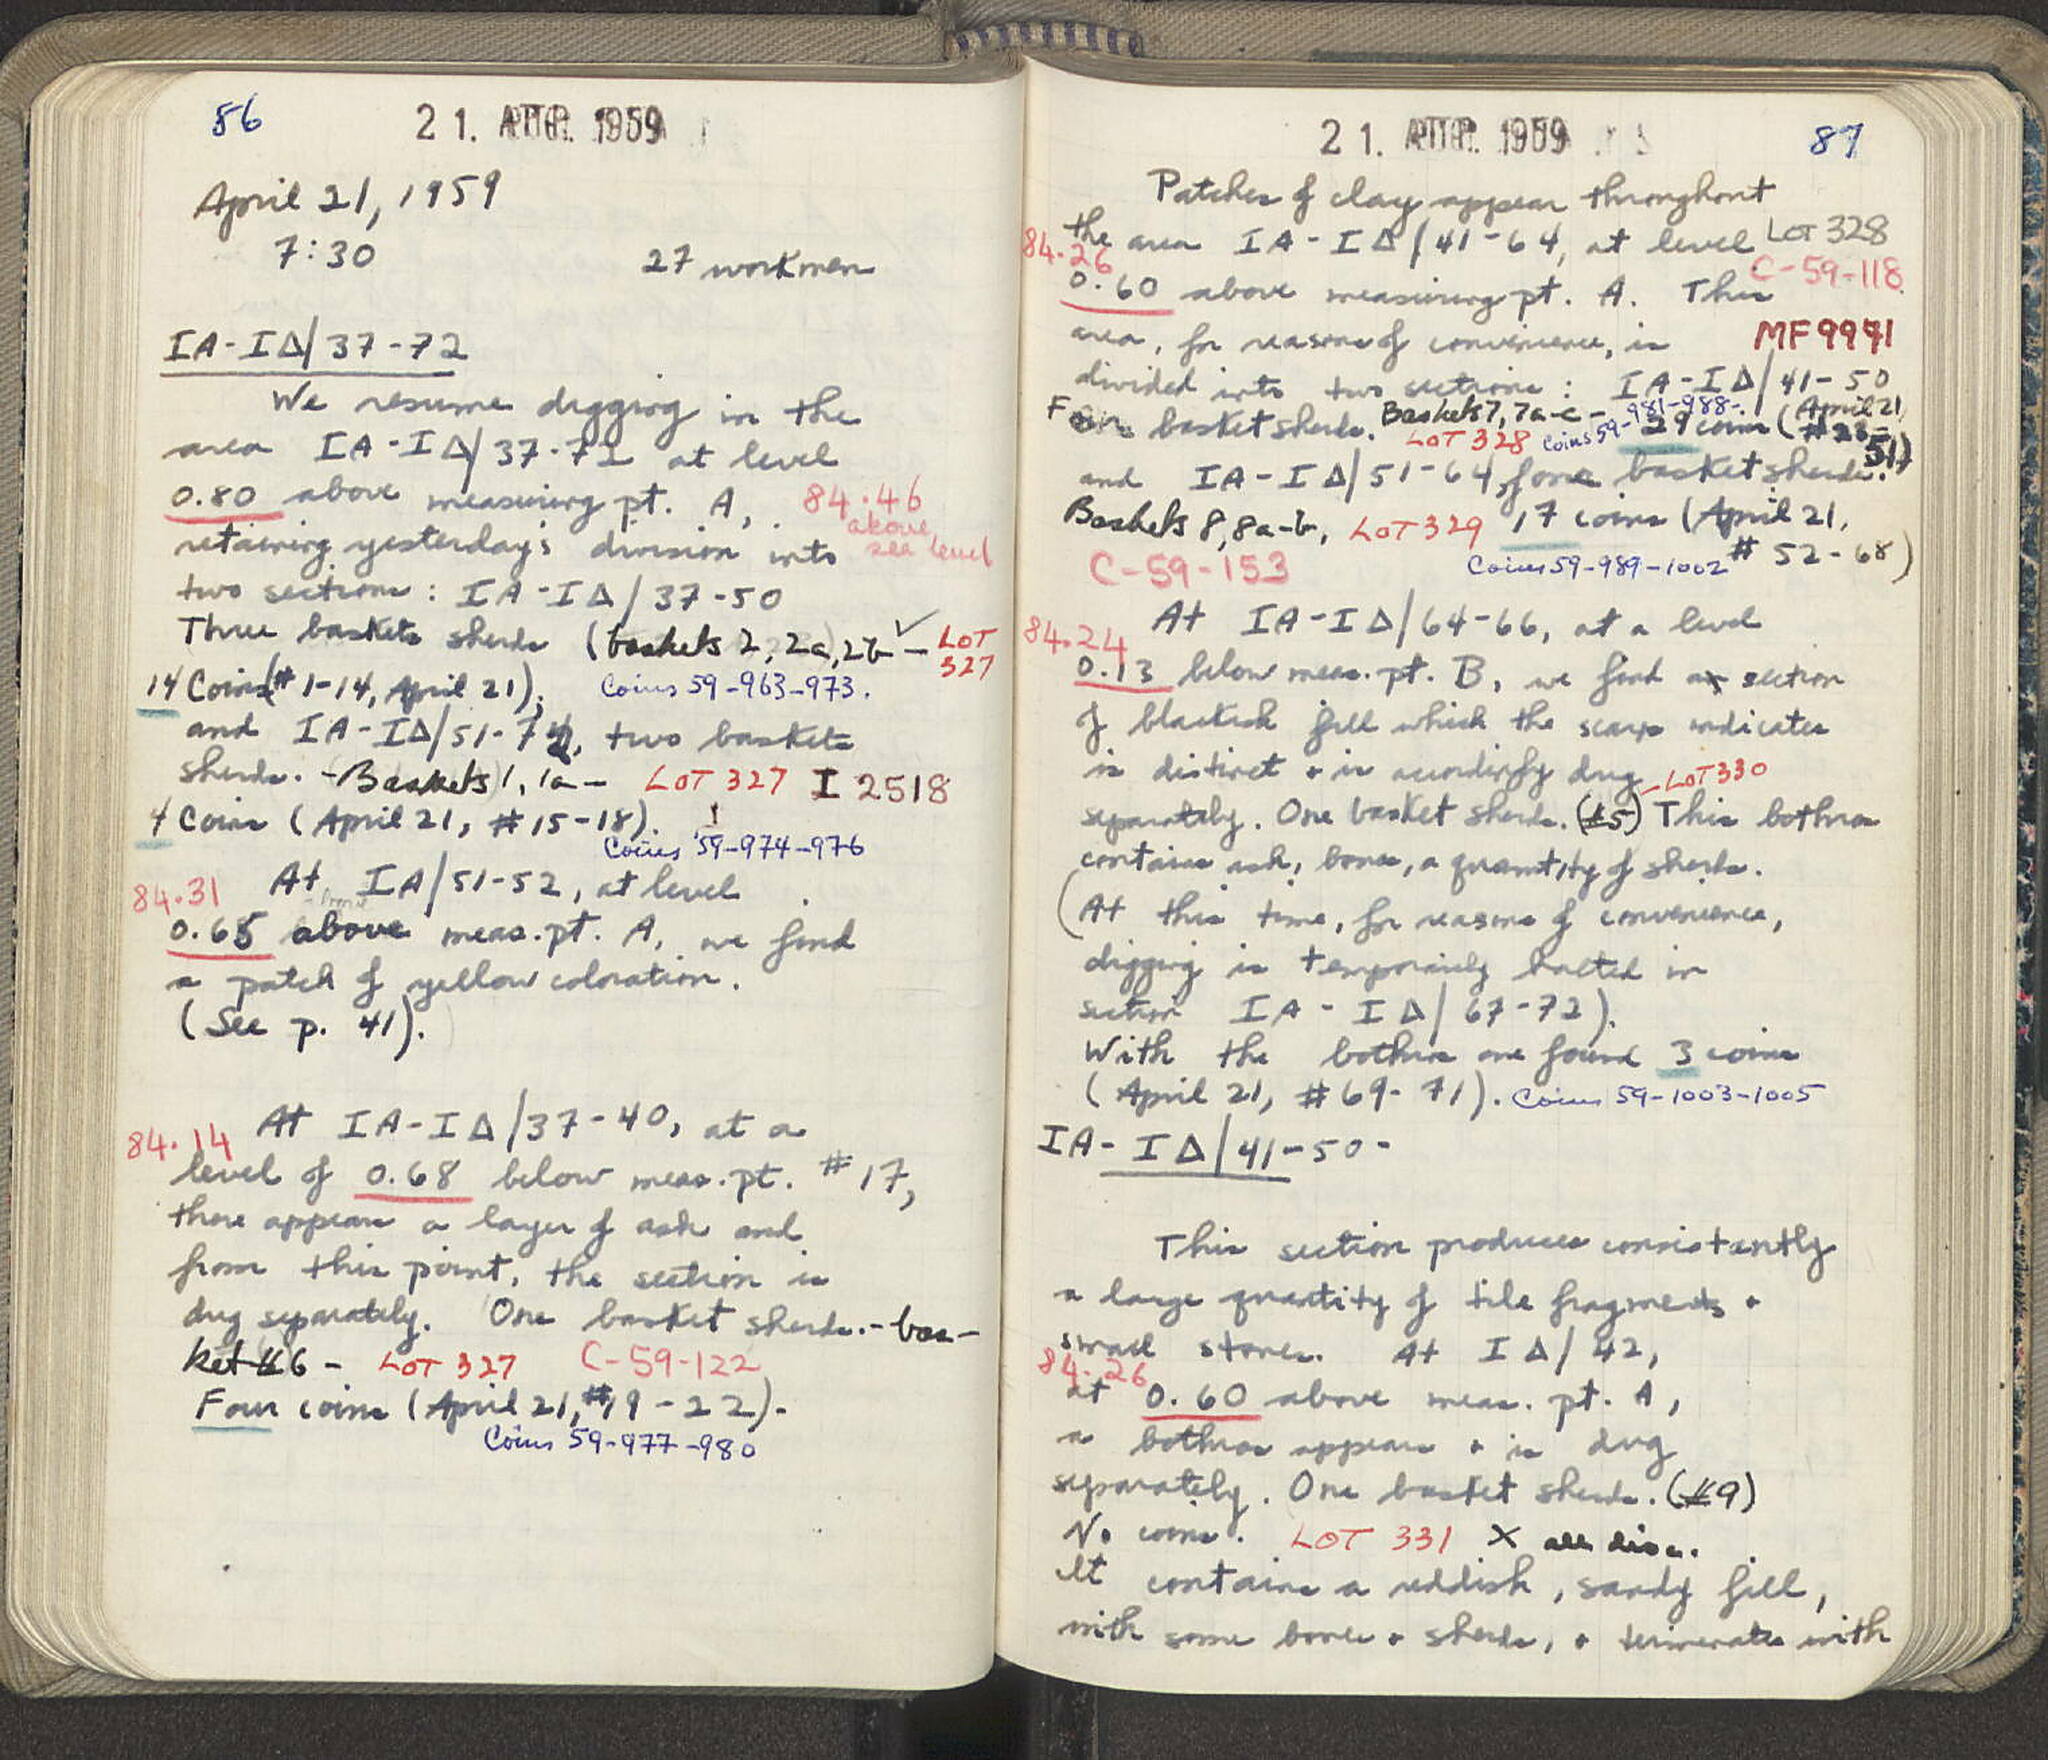 56
21. APR. 1959
April 21, 1959
7:30
27 workmen
IA-IΔ/37-72
We resume digging in the
area IA-IΔ/37-72 at level
0.80 above measuring pt. A,
84.46
above
sea level
retaining yesterday's division into
two sections: IA-IΔ/37-50
Three baskets sherds (baskets 2, 2a, 2b ✓ - LOT
327
14 Coins (#1-14, April 21);
Coins 59-963-973.
and IA-IΔ/51-72, two baskets
sherds. - Baskets 1, 1a - LOT 327 I 2518
4 Coins (April 21, #15-18).
Coins 59-974-976
At IA/51-52, at level
84.31
0.65 above meas. pt. A, we find
a patch of yellow coloration.
(See p. 41).
At IA-IΔ/37-40, at a
84.14
level of 0.68 below meas. pt. #17,
there appears a layer of ash and
from this point, the section is
dug separately. One basket sherds. - bas-
ket #6 - LOT 327 C-59-122
Four coins (April 21, #19-22).
Coins 59-977-980
21. APR. 1959
87
Patches of clay appear throughout
the area IA-IΔ/41-64, at level
LOT 328
84.26
C-59-118
0.60 above measuring pt. A. This
area, for reasons of convenience, is
MF9971
divided into two sections: IA-IΔ/41-50
Four basket sherds. Baskets 7, 7a-c - 29 coins (April 21
LOT 328 Coins 59-981-988. #23-51)
and IA-IΔ/51-64, four basket sherds.
Baskets 8, 8a-b, LOT 329 17 coins (April 21,
#52-68)
C-59-153
Coins 59-989-1002
At IA-IΔ/64-66, at a level
84.24
0.13 below meas. pt. B, we find a section
of blackish fill which the scarp indicates
is distinct + is accordingly dug
separately. One basket sherds. (#5) - LOT 330 This bothros
contains ash, bones, a quantity of sherds.
(At this time, for reasons of convenience,
digging is temporarily halted in
section IA-IΔ/67-72).
With the bothros are found 3 coins
(April 21, #69-71). Coins 59-1003-1005
IA-IΔ/41-50-
This section produces consistently
a large quantity of tile fragments +
small stones. At IΔ/42,
84.26
at 0.60 above meas. pt. A,
a bothros appears + is dug
separately. One basket sherds. (#9)
No coins. LOT 331 X all disc.
It contains a reddish, sandy fill,
with some bones + sherds, + terminates with